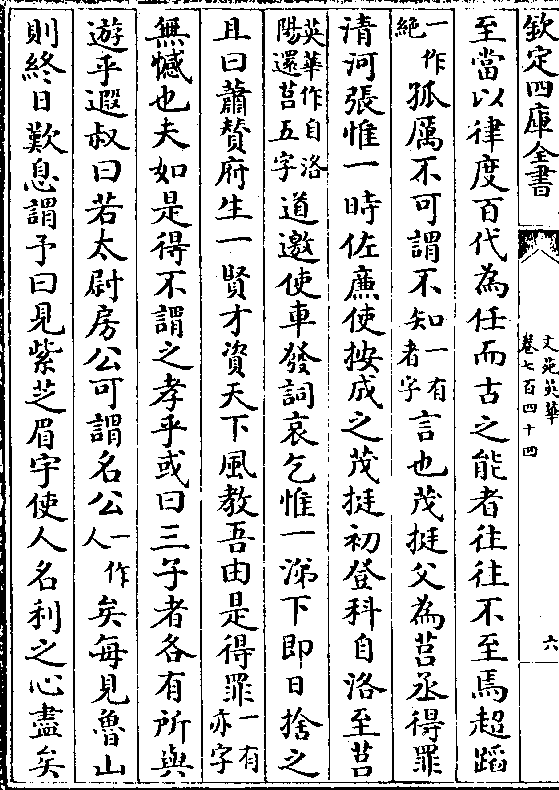 欽定四庫全書
文苑英華
卷七百四十四
六
至當以律度百代為任而古之能者往往不至馬超蹈
一作絕孤厲不可謂不知一有者字言也茂挺父為莒丞得罪
清河張惟一時佐廉使按成之茂挺初登科自洛至莒
英華作自洛陽還莒五字道邀使車發詞哀乞惟一涕下即日捨之
且曰蕭贊府生一賢才資天下風教吾由是得罪一有亦字
無憾也夫如是得不謂之孝乎或曰三子者各有所與
遊乎遐叔曰若太尉房公可謂名公一作人矣每見魯山
則終日歎息謂予曰見紫芝眉宇使人名利之心盡矣